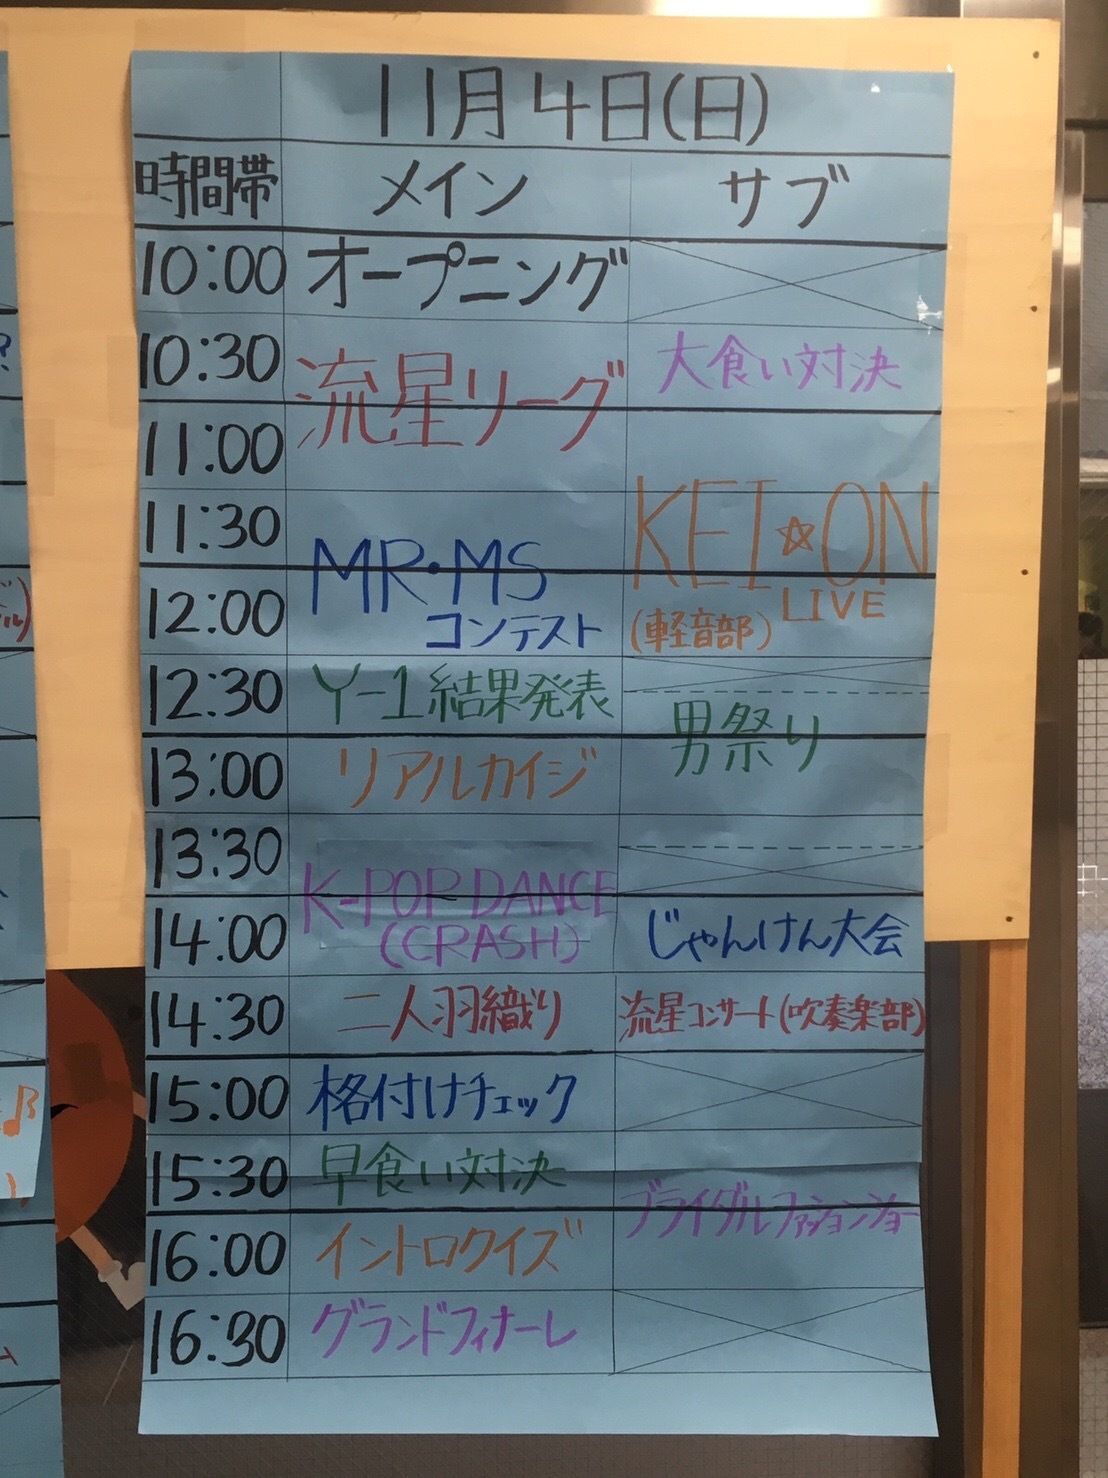 11月4日(日)
時間帯 メイン サブ
10:00 オープニング
10:30 流星リーグ 大食い対決
11:00
11:30 MR・MS コンテスト KEI☆ON LIVE
12:00 (軽音部)
12:30 Y-1結果発表 男祭り
13:00 リアルカイジ
13:30 K-POP DANCE
14:00 (CRASH) じゃんけん大会
14:30 二人羽織り 流星コンサート(吹奏楽部)
15:00 格付けチェック
15:30 早食い対決 ブライダルファッションショー
16:00 イントロクイズ
16:30 グランドフィナーレ